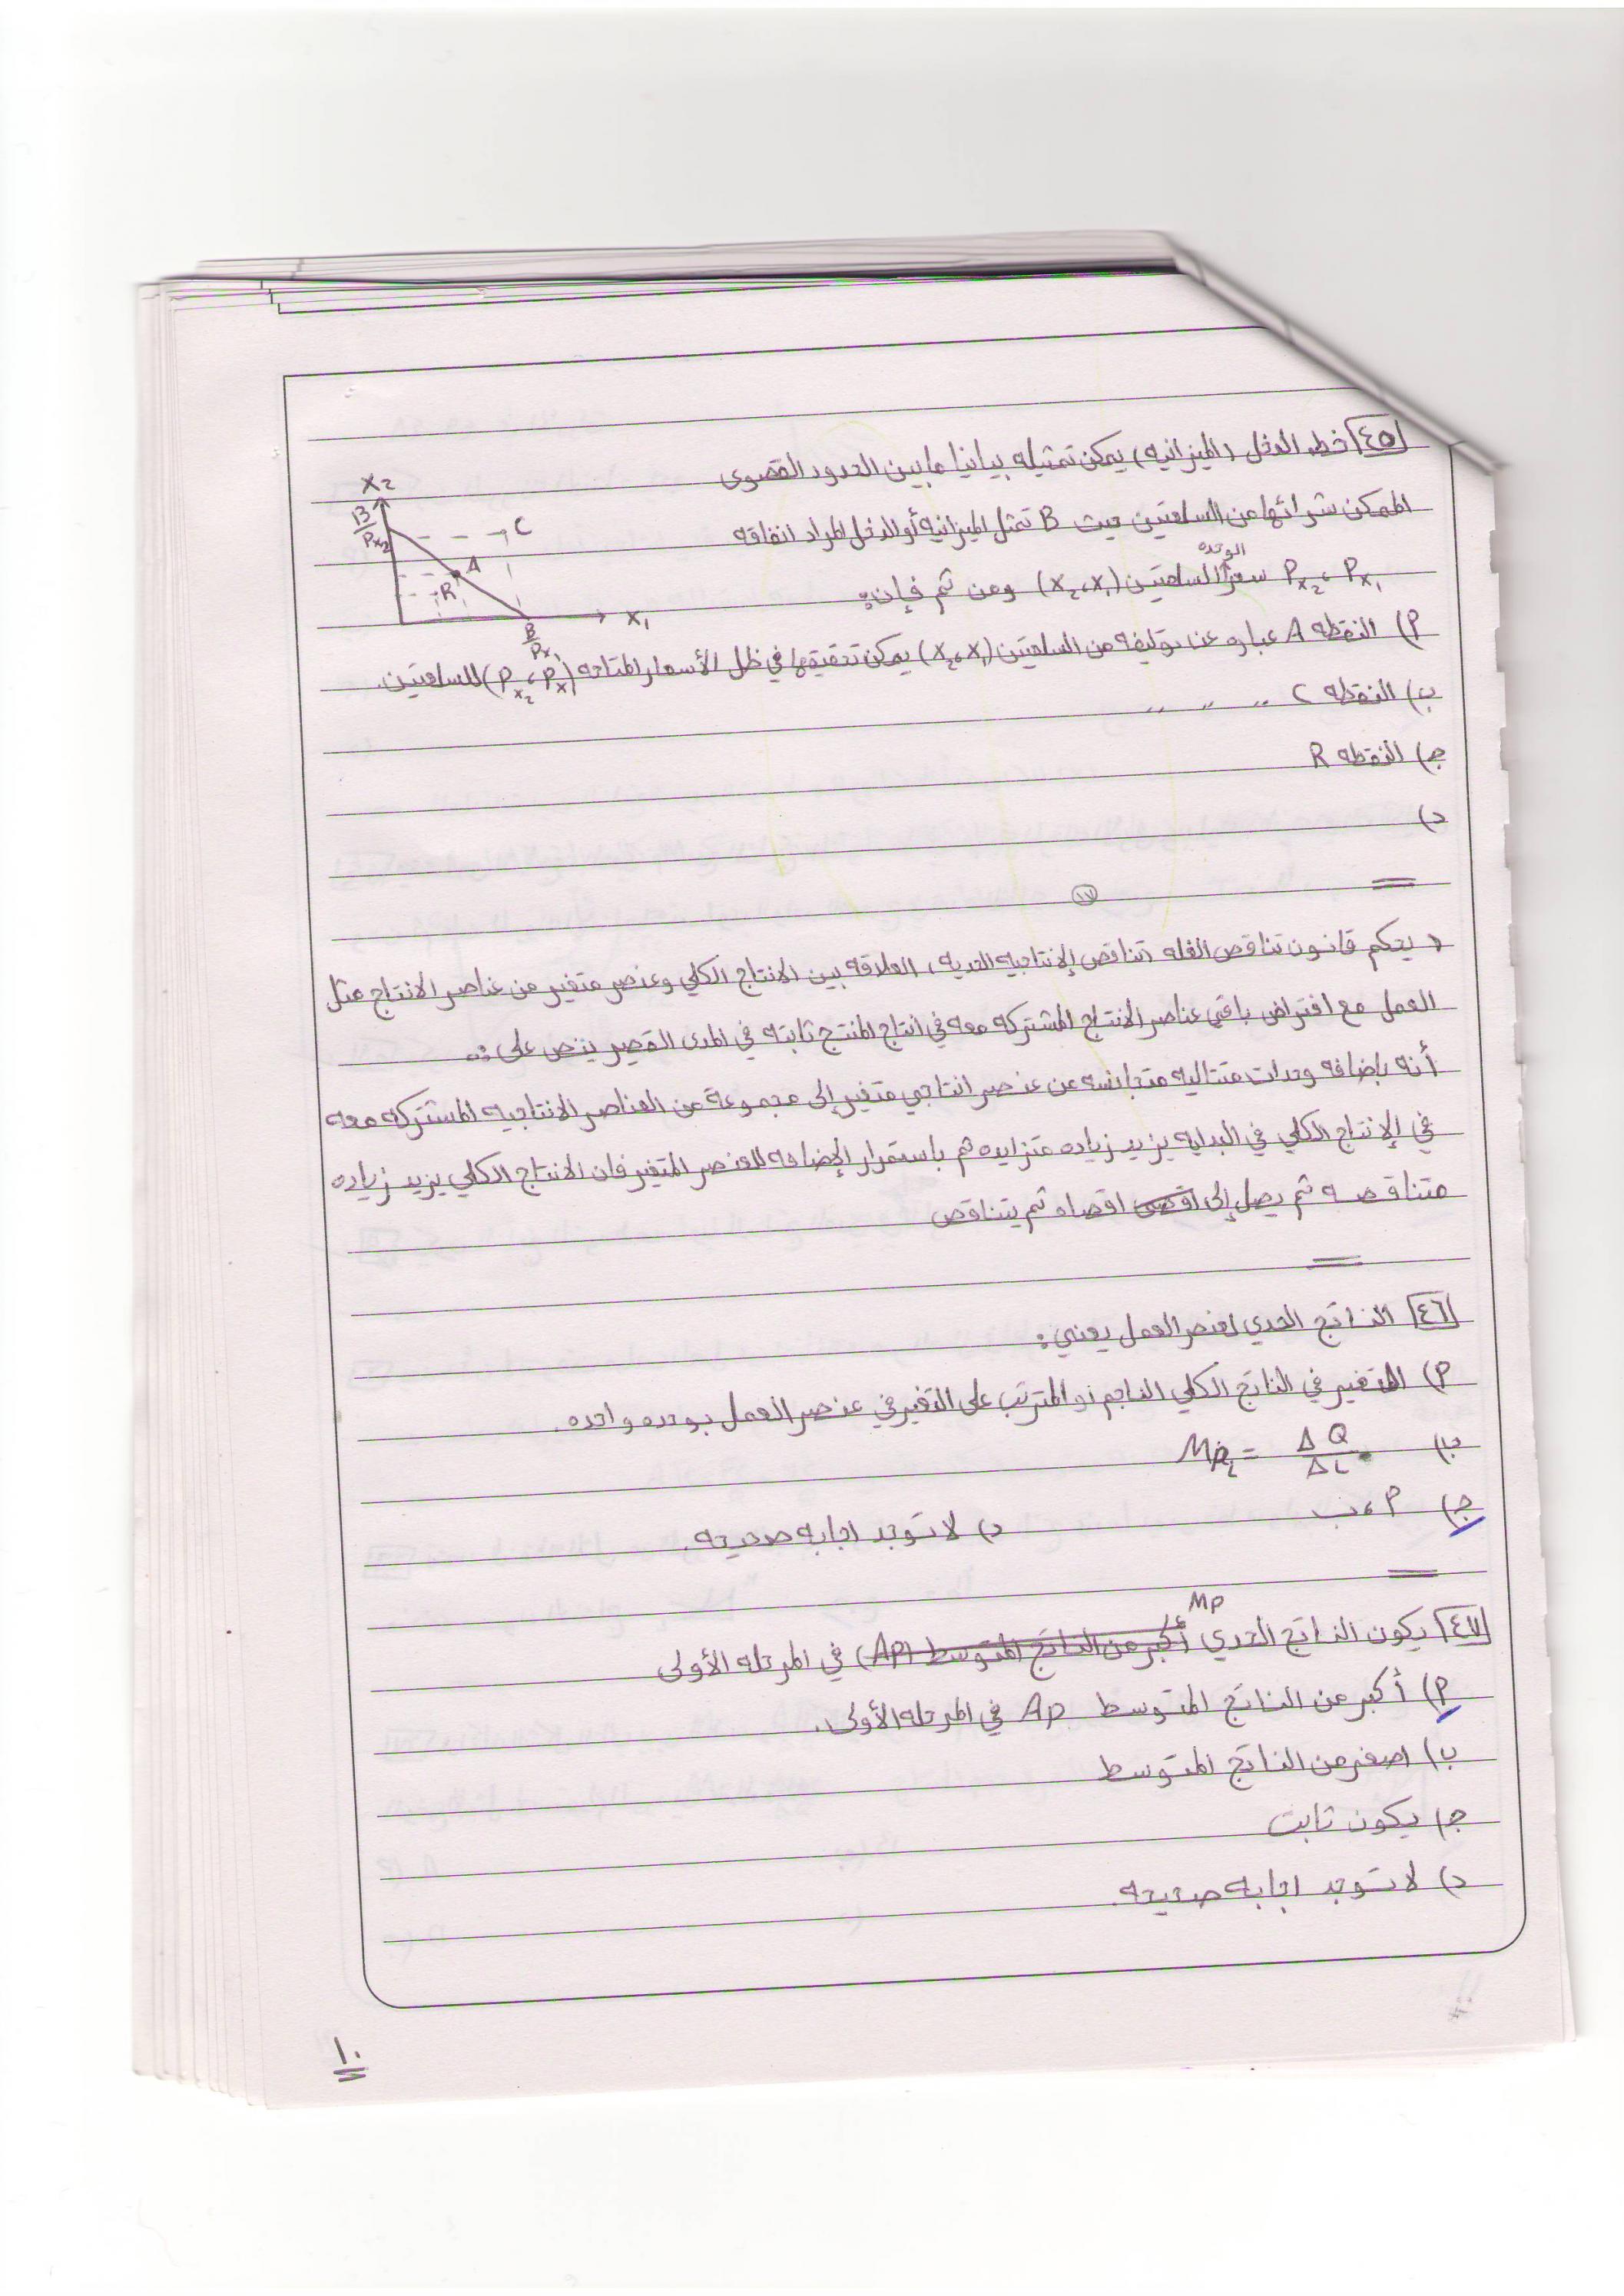 ٤٥ خط الدخل (الميزانيه) يمكن تمثيله بيانيا ما بين الحدود القصوى
الممكن شرائها من السلعتين حيث B تمثل الميزانيه أو الدخل المراد انفاقه
Px₁ ، Px₂ سعر الوحده السلعتين (x₁ ، x₂) ومن ثم فإن:
X₂
B/Px₂
C
A
R
X₁
B/Px₁
أ) النقطه A عباره عن توليفه من السلعتين (x₁ ، x₂) يمكن تحقيقها في ظل الأسعار المتاحه (Px₁ ، Px₂) للسلعتين.
ب) النقطه C " " "
ج) النقطه R
د)
١٧
يحكم قانون تناقص الغله (تناقص الإنتاجيه الحديه) العلاقه بين الانتاج الكلي وعنصر متغير من عناصر الانتاج مثل
العمل مع افتراض باقي عناصر الانتاج المشتركه معه في انتاج المنتج ثابته في المدى القصير ينص على :
أنه بإضافه وحدات متتاليه متجانسه من عنصر انتاجي متغير إلى مجموعة من العناصر الانتاجيه المشتركه معه
في الإنتاج الكلي في البدايه يزيد زياده متزايده ثم باستمرار الإضافه للعنصر المتغير فان الانتاج الكلي يزيد زياده
متناقصه ثم يصل إلى اقصى اقصاه ثم يتناقص
٤٦ الناتج الحدي لعنصر العمل يعني:
أ) التغير في الناتج الكلي الناجم او المترتب على التغير في عنصر العمل بوحده واحده.
ب) MP_L = ΔQ/ΔL
ج) أ ، ب د) لا توجد اجابه صحيحه.
٤٧ يكون الناتج الحدي MP أكبر من الناتج المتوسط (AP) في المرحله الأولى
أ) أكبر من الناتج المتوسط AP في المرحله الأولى.
ب) اصغر من الناتج المتوسط
ج) يكون ثابت
د) لا توجد اجابه صحيحه.
١٠